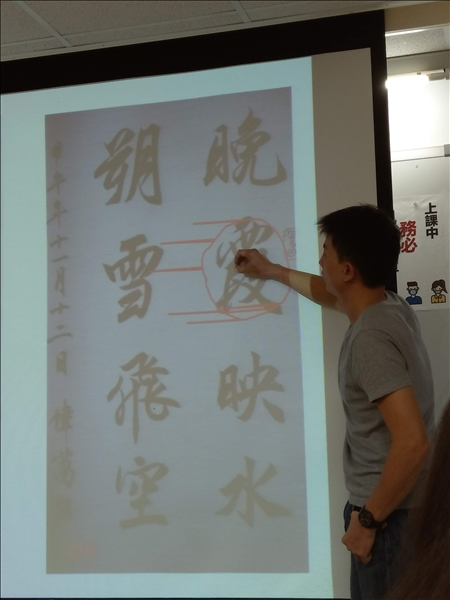 晚霞映水
朔雪飛空
甲午年十一月十二日
上課中
務必